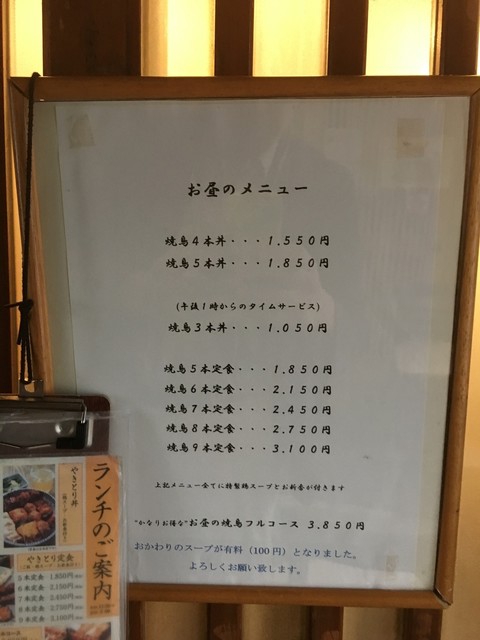 お昼のメニュー
焼鳥４本丼・・・１.５５０円
焼鳥５本丼・・・１.８５０円
(午後１時からのタイムサービス)
焼鳥３本丼・・・１.０５０円
焼鳥５本定食・・・１.８５０円
焼鳥６本定食・・・２.１５０円
焼鳥７本定食・・・２.４５０円
焼鳥８本定食・・・２.７５０円
焼鳥９本定食・・・３.１００円
上記メニュー全てに特製鶏スープとお新香が付きます
"かなりお得な"お昼の焼鳥フルコース 3.850円
おかわりのスープが有料（100円）となりました。
よろしくお願い致します。
ランチのご案内
やきとり丼
やきとり定食
5本定食 1,850円
6本定食 2,150円
7本定食 2,450円
8本定食 2,750円
9本定食 3,100円